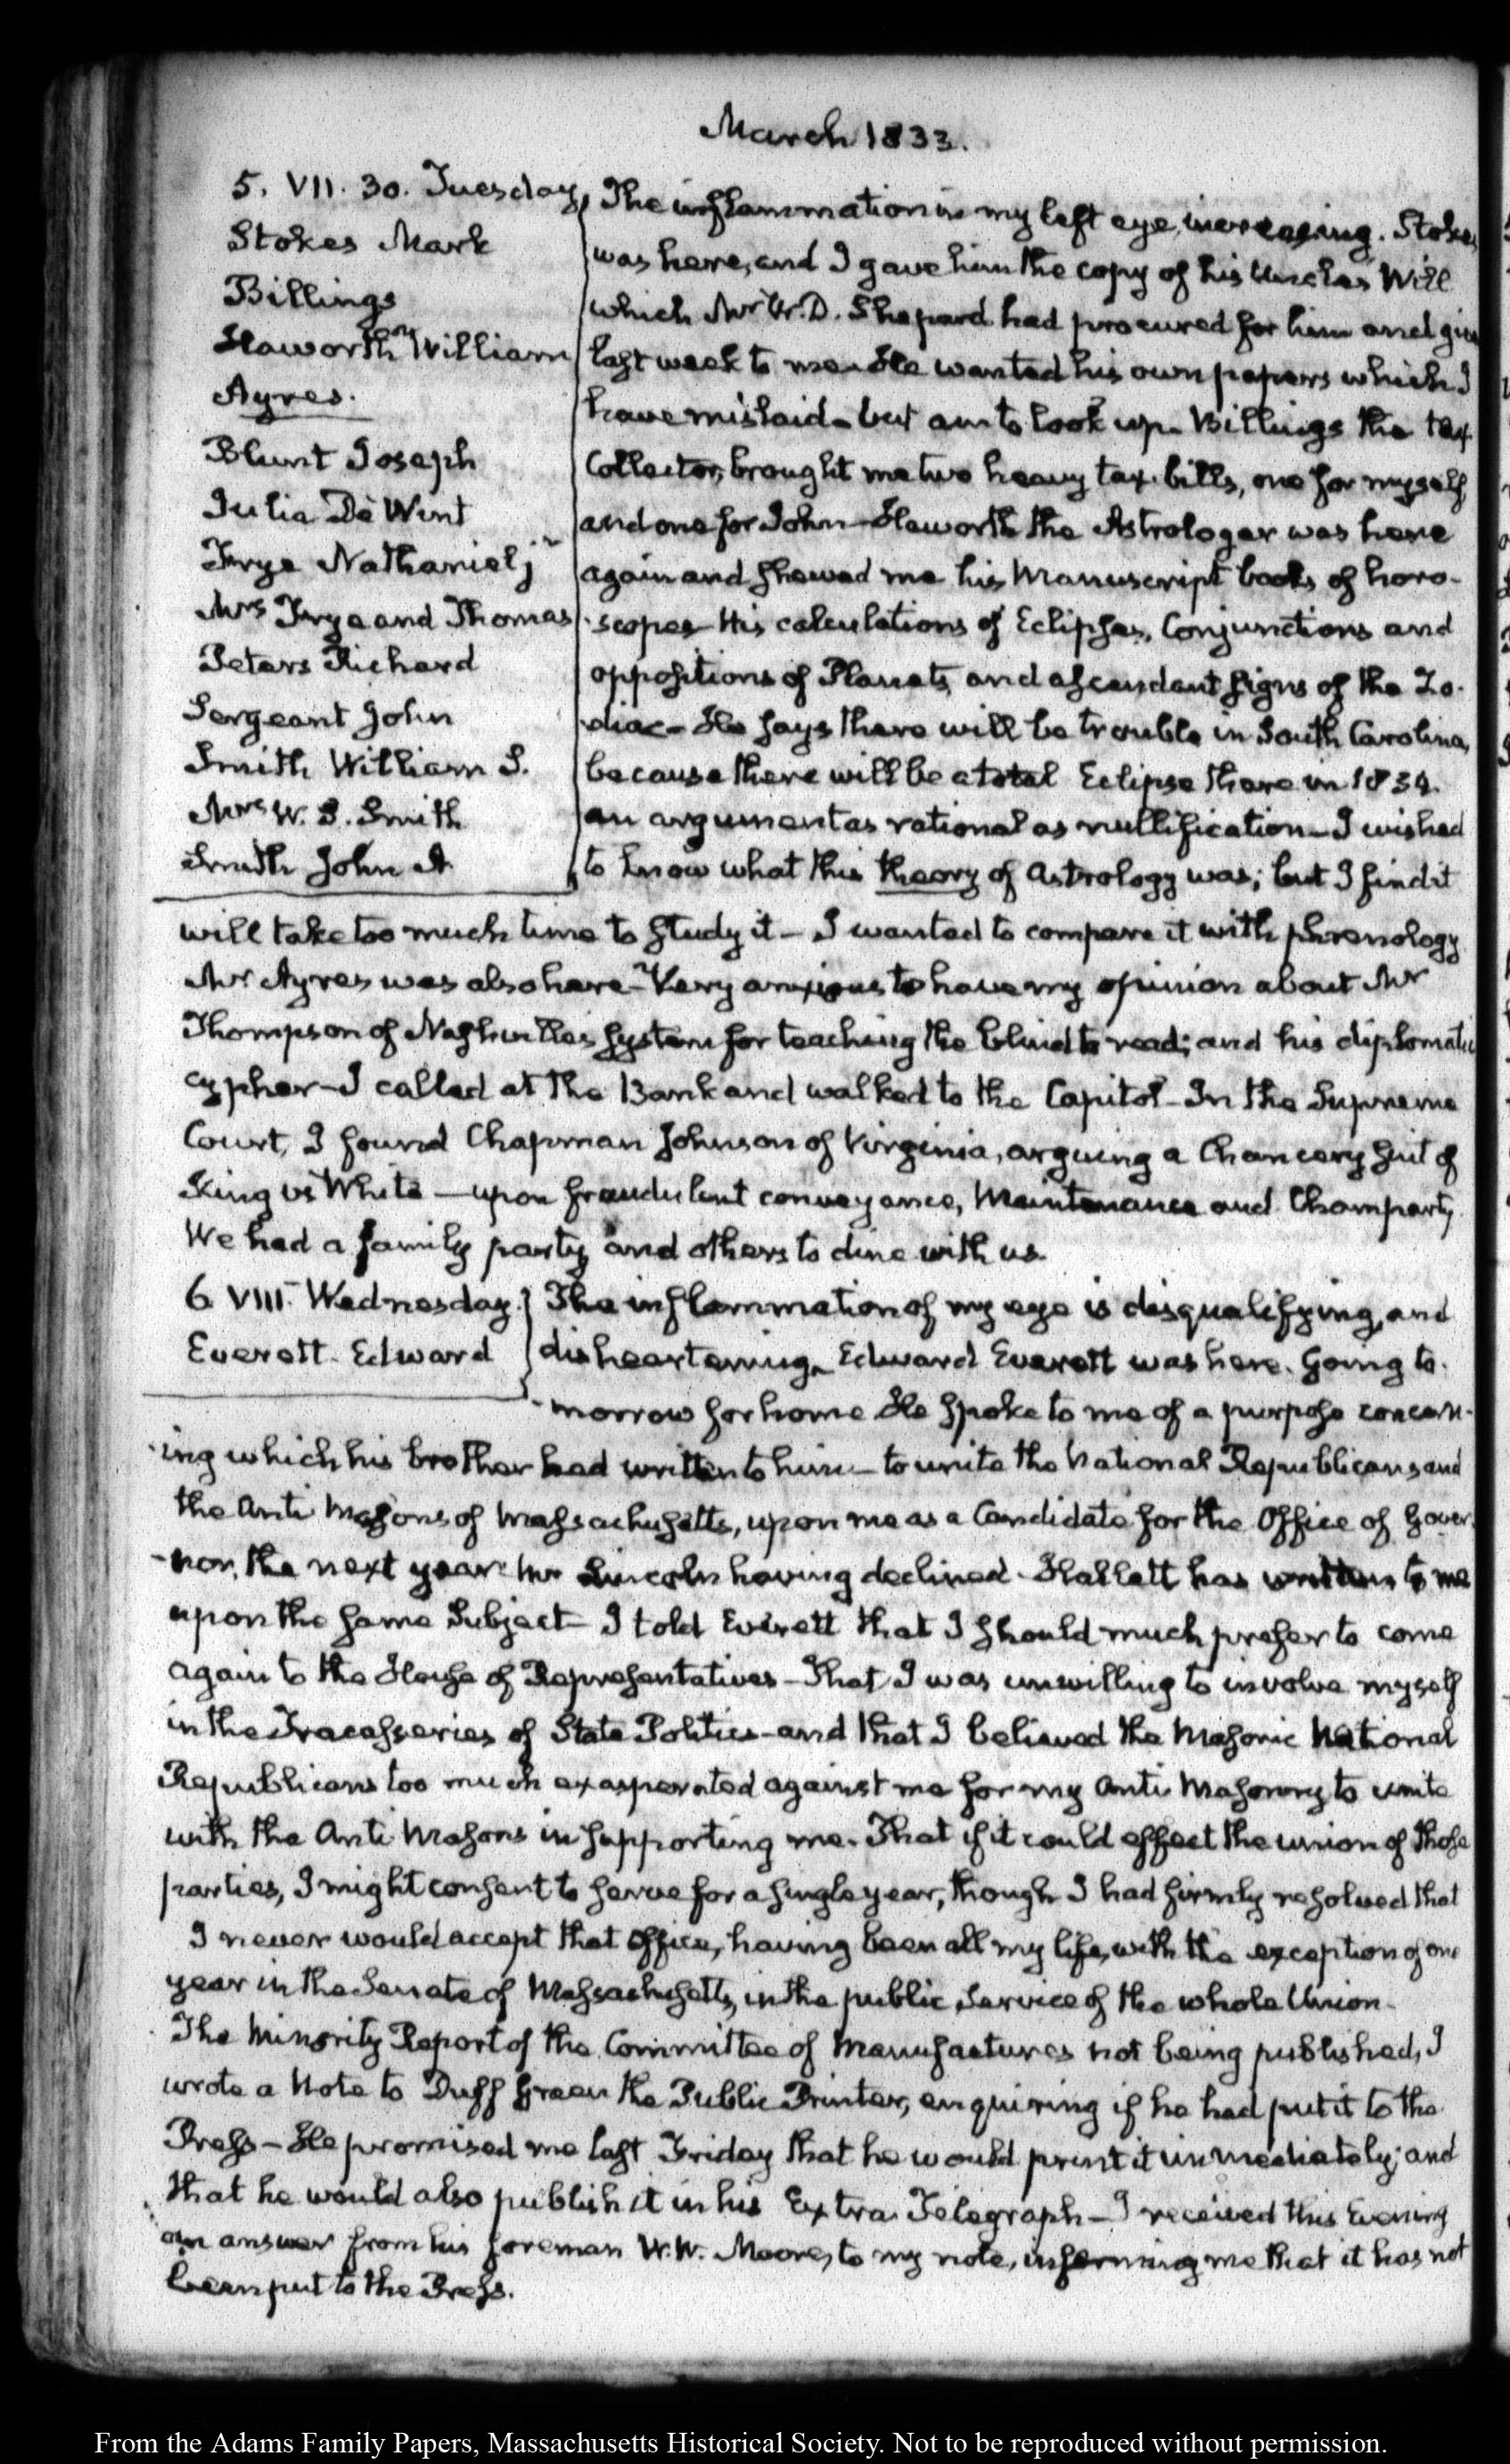 March 1833.
5. VII. 30. Tuesday,
Stokes Mark
Billings
Haworth William
Ayres.
Blunt Joseph
Julia De Wint
Frye Nathaniel jr
Mrs Frye and Thomas
Peters Richard
Sergeant John
Smith William S.
Mrs W. S. Smith
Smith John A
The inflammation in my left eye, increasing. Stokes
was here, and I gave him the copy of his Uncle's Will
which Mr W. D. Shepard had procured for him and given
last week to me. He wanted his own papers which I
have mislaid- but am to look up. Billings the tax
Collector, brought me two heavy tax-bills, one for myself
and one for John- Haworth the Astrologer was here
again and shewed me his Manuscript books of horo-
-scopes- His calculations of Eclipses, Conjunctions and
oppositions of Planets, and ascendant signs of the Zo-
-diac- He says there will be trouble in South Carolina,
because there will be a total Eclipse there in 1834.
an argument as rational as nullification- I wished
to know what this theory of Astrology was; but I find it
will take too much time to study it- I wanted to compare it with phrenology
Mr Ayres was also here- Very anxious to have my opinion about Mr
Thompson of Nashville's system for teaching the blind to read; and his diplomatic
cypher- I called at the Bank and walked to the Capitol- In the Supreme
Court, I found Chapman Johnson of Virginia, arguing a Chancery suit of
King vs White- upon fraudulent conveyance, Maintenance and Champarty
We had a family party and others to dine with us.
6 VIII. Wednesday.
Everett. Edward
The inflammation of my eye is disqualifying, and
disheartening. Edward Everett was here. Going to-
-morrow for home He spoke to me of a purpose concern-
-ing which his brother had written to him- to unite the National Republicans and
the Anti Masons of Massachusetts, upon me as a Candidate for the Office of Gover-
-nor, the next year: Mr Lincoln having declined. Hallett has written to me
upon the same Subject- I told Everett that I should much prefer to come
again to the House of Representatives- That I was unwilling to involve myself
in the Tracasseries of State Politics- and that I believed the Masonic National
Republicans too much exasperated against me for my Anti Masonry to unite
with the Anti Masons in supporting me. That if it could effect the union of those
parties, I might consent to serve for a single year, though I had firmly resolved that
I never would accept that Office, having been all my life, with the exception of one
year in the Senate of Massachusetts, in the public Service of the whole Union.
The Minority Report of the Committee of Manufactures not being published, I
wrote a Note to Duff Green the Public Printer, enquiring if he had put it to the
Press- He promised me last Friday that he would print it immediately; and
that he would also publish it in his Extra Telegraph- I received this Evening
an answer from his foreman W. W. Moore, to my note, informing me that it has not
been put to the Press.
From the Adams Family Papers, Massachusetts Historical Society. Not to be reproduced without permission.